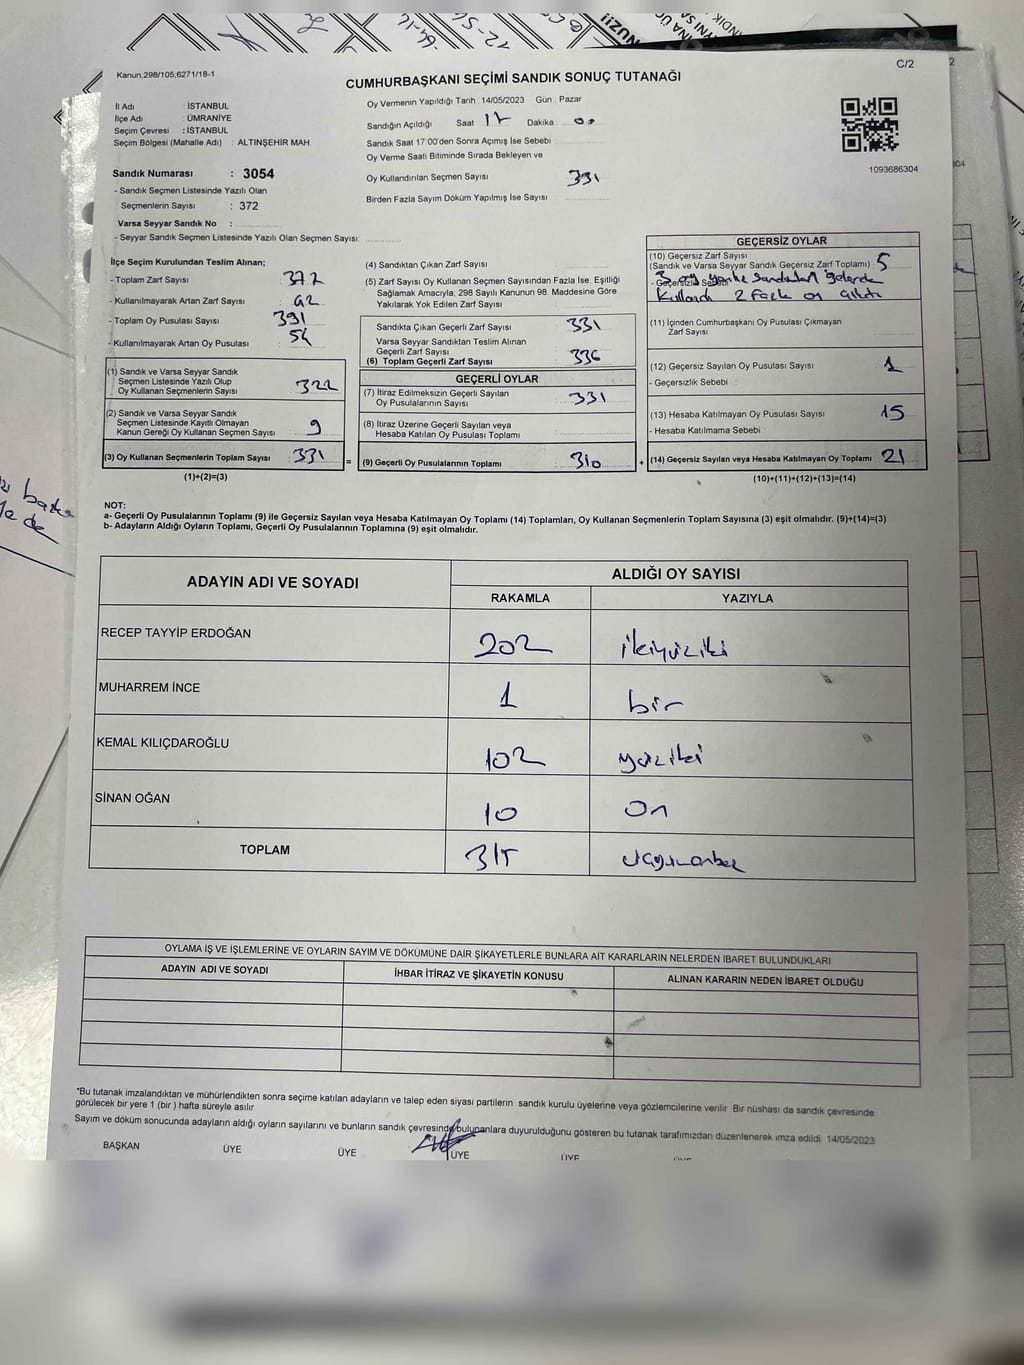 Kanun,298/105,6271/18-1
C/2
CUMHURBAŞKANI SEÇİMİ SANDIK SONUÇ TUTANAĞI
İl Adı : İSTANBUL
İlçe Adı : ÜMRANİYE
Seçim Çevresi : İSTANBUL
Seçim Bölgesi (Mahalle Adı) : ALTINŞEHİR MAH.
Sandık Numarası : 3054
- Sandık Seçmen Listesinde Yazılı Olan
Seçmenlerin Sayısı : 372
Varsa Seyyar Sandık No :
- Seyyar Sandık Seçmen Listesinde Yazılı Olan Seçmen Sayısı:
Oy Vermenin Yapıldığı Tarih 14/05/2023 Gün : Pazar
Sandığın Açıldığı Saat 17 Dakika 00
Sandık Saat 17:00'den Sonra Açımış İse Sebebi
Oy Verme Saati Bitiminde Sırada Bekleyen ve
Oy Kullandırılan Seçmen Sayısı 331
Birden Fazla Sayım Döküm Yapılmış İse Sayısı
1093686304
İlçe Seçim Kurulundan Teslim Alınan;
- Toplam Zarf Sayısı 372
- Kullanılmayarak Artan Zarf Sayısı 42
- Toplam Oy Pusulası Sayısı 391
- Kullanılmayarak Artan Oy Pusulası 54
(1) Sandık ve Varsa Seyyar Sandık
Seçmen Listesinde Yazılı Olup
Oy Kullanan Seçmenlerin Sayısı 322
(2) Sandık ve Varsa Seyyar Sandık
Seçmen Listesinde Kayıtlı Olmayan
Kanun Gereği Oy Kullanan Seçmen Sayısı 9
(3) Oy Kullanan Seçmenlerin Toplam Sayısı 331
(1)+(2)=(3)
(4) Sandıktan Çıkan Zarf Sayısı
(5) Zarf Sayısı Oy Kullanan Seçmen Sayısından Fazla İse, Eşitliği
Sağlamak Amacıyla, 298 Sayılı Kanunun 98. Maddesine Göre
Yakılarak Yok Edilen Zarf Sayısı
Sandıkta Çıkan Geçerli Zarf Sayısı 331
Varsa Seyyar Sandıktan Teslim Alınan
Geçerli Zarf Sayısı
(6) Toplam Geçerli Zarf Sayısı 336
GEÇERLİ OYLAR
(7) İtiraz Edilmeksizin Geçerli Sayılan
Oy Pusulalarının Sayısı 331
(8) İtiraz Üzerine Geçerli Sayılan veya
Hesaba Katılan Oy Pusulası Toplamı
= (9) Geçerli Oy Pusulalarının Toplamı 310
GEÇERSİZ OYLAR
(10) Geçersiz Zarf Sayısı
(Sandık ve Varsa Seyyar Sandık Geçersiz Zarf Toplamı) 5
- Geçersizlik Sebebi
3 oy
2 fazla oy
(11) İçinden Cumhurbaşkanı Oy Pusulası Çıkmayan
Zarf Sayısı
(12) Geçersiz Sayılan Oy Pusulası Sayısı 1
- Geçersizlik Sebebi
(13) Hesaba Katılmayan Oy Pusulası Sayısı 15
- Hesaba Katılmama Sebebi
+ (14) Geçersiz Sayılan veya Hesaba Katılmayan Oy Toplamı 21
(10)+(11)+(12)+(13)=(14)
NOT:
a- Geçerli Oy Pusulalarının Toplamı (9) ile Geçersiz Sayılan veya Hesaba Katılmayan Oy Toplamı (14) Toplamları, Oy Kullanan Seçmenlerin Toplam Sayısına (3) eşit olmalıdır. (9)+(14)=(3)
b- Adayların Aldığı Oyların Toplamı, Geçerli Oy Pusulalarının Toplamına (9) eşit olmalıdır.
ADAYIN ADI VE SOYADI
ALDIĞI OY SAYISI
RAKAMLA YAZIYLA
RECEP TAYYİP ERDOĞAN 202 ikiyüziki
MUHARREM İNCE 1 bir
KEMAL KILIÇDAROĞLU 102 yüziki
SİNAN OĞAN 10 On
TOPLAM 315
OYLAMA İŞ VE İŞLEMLERİNE VE OYLARIN SAYIM VE DÖKÜMÜNE DAİR ŞİKAYETLERLE BUNLARA AİT KARARLARIN NELERDEN İBARET BULUNDUKLARI
ADAYIN ADI VE SOYADI İHBAR İTİRAZ VE ŞİKAYETİN KONUSU ALINAN KARARIN NEDEN İBARET OLDUĞU
*Bu tutanak imzalandıktan ve mühürlendikten sonra seçime katılan adayların ve talep eden siyasi partilerin sandık kurulu üyelerine veya gözlemcilerine verilir. Bir nüshası da sandık çevresinde
görülecek bir yere 1 (bir ) hafta süreyle asılır.
Sayım ve döküm sonucunda adayların aldığı oyların sayılarını ve bunların sandık çevresinde bulunanlara duyurulduğunu gösteren bu tutanak tarafımızdan düzenlenerek imza edildi. 14/05/2023
BAŞKAN ÜYE ÜYE ÜYE ÜYE